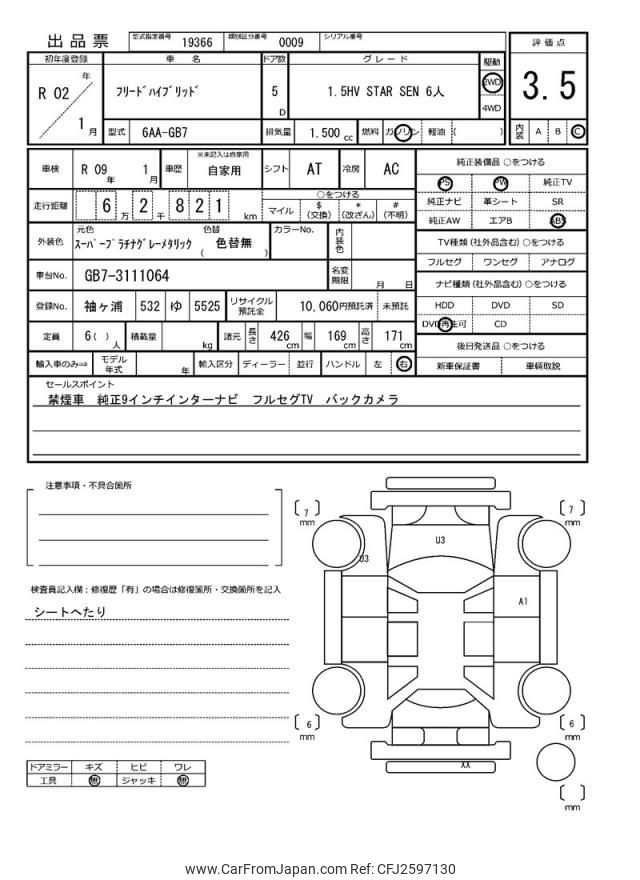 出品票 型式指定番号 19366 類別区分番号 0009 シリアル番号
評価点
3.5
内装 A B C
初年度登録 車名 ドア数 グレード 駆動
R 02 年 1 月
フリードハイブリッド 5 D 1.5HV STAR SEN 6人 2WD 4WD
型式 6AA-GB7 排気量 1.500 cc 燃料 ガソリン 軽油 ( )
車検 R 09 年 1 月 車歴 ※未記入は自家用 自家用 シフト AT 冷房 AC
走行距離 6 万 2 千 8 2 1 km
○をつける
マイル $ (交換) * (改ざん) # (不明)
外装色 元色 スーパープラチナグレーメタリック 色替 ( 色替無 ) カラーNo. 内装色
車台No. GB7-3111064 名変期限 月 日
登録No. 袖ヶ浦 532 ゆ 5525 リサイクル預託金 10,060円預託済 未預託
定員 6 ( ) 人 積載量 kg 諸元 長さ 426 cm 幅 169 cm 高さ 171 cm
輸入車のみ⇒ モデル年式 年 輸入区分 ディーラー 並行 ハンドル 左 右
純正装備品 ○をつける
PS PW 純正TV
純正ナビ 革シート SR
純正AW エアB ABS
TV種類(社外品含む) ○をつける
フルセグ ワンセグ アナログ
ナビ種類(社外品含む) ○をつける
HDD DVD SD
DVD再生可 CD
後日発送品 ○をつける
新車保証書 車輌取説
セールスポイント
禁煙車 純正9インチインターナビ フルセグTV バックカメラ
注意事項・不具合箇所
検査員記入欄:修復歴「有」の場合は修復箇所・交換箇所を記入
シートへたり
ドアミラー キズ ヒビ ワレ
工具 無 ジャッキ 無
7 mm
7 mm
U3
U3
A1
6 mm
6 mm
XX
mm
www.CarFromJapan.com Ref: CFJ2597130